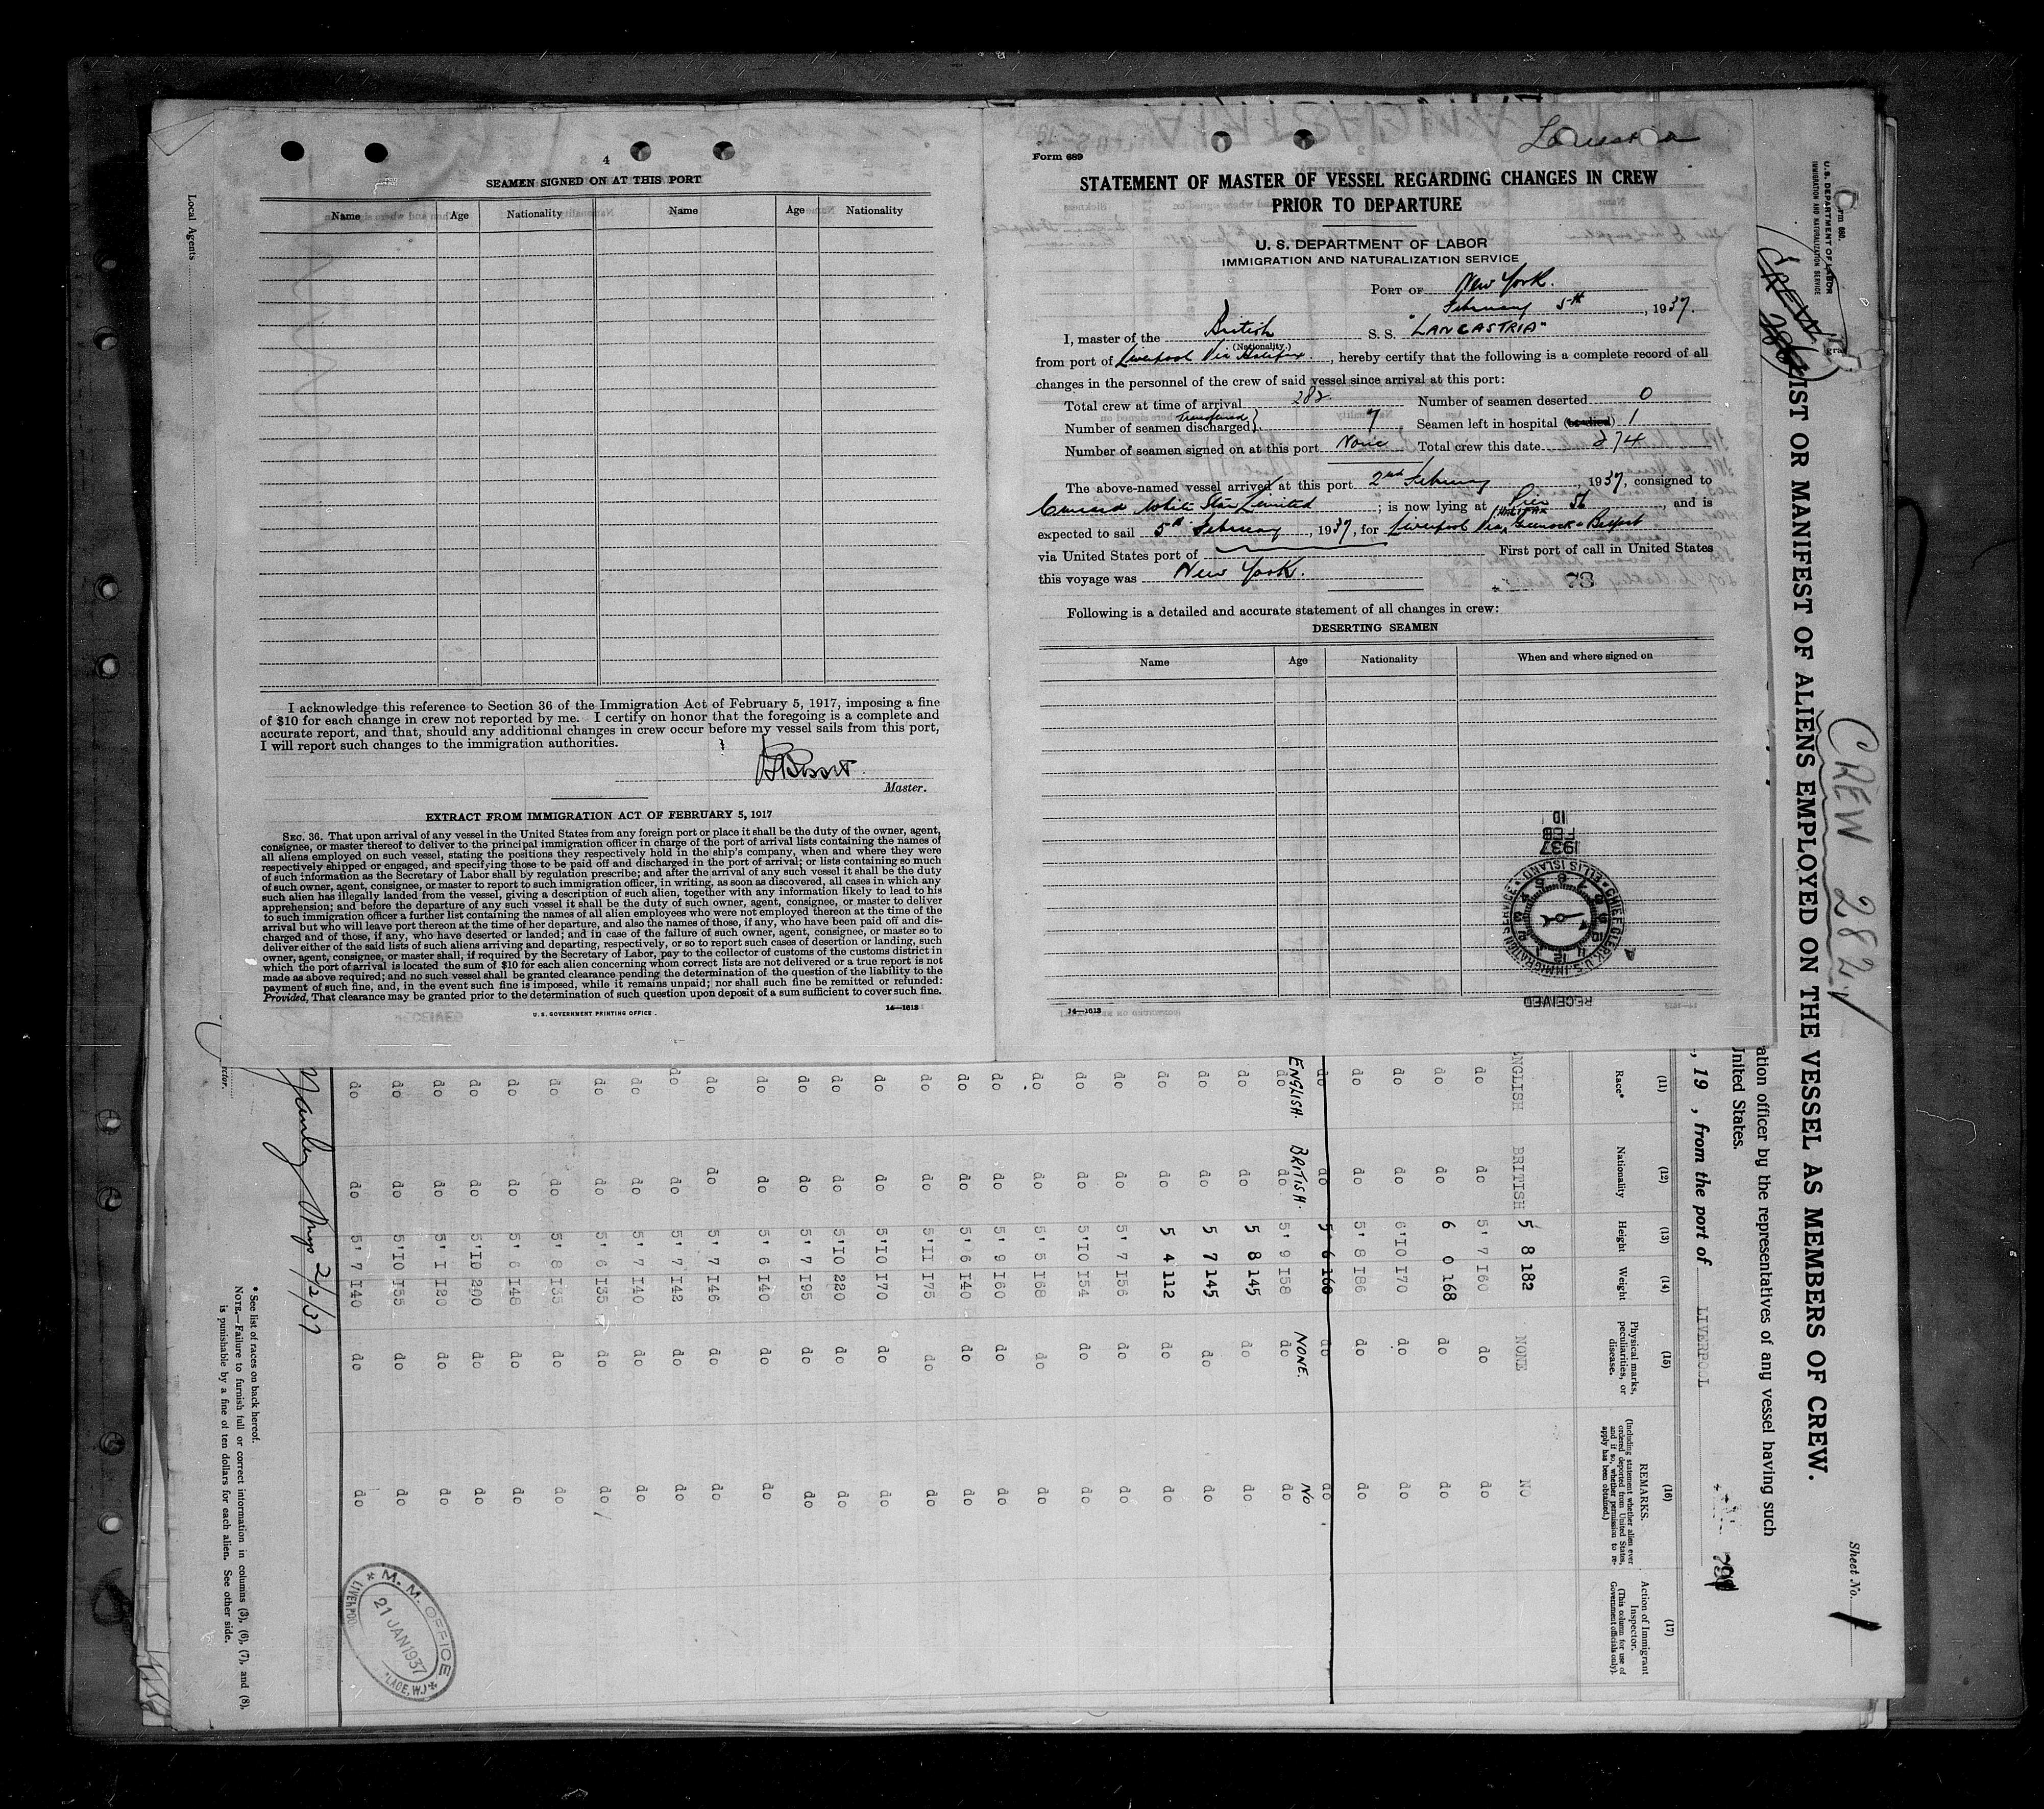 Local Agents
4
SEAMEN SIGNED ON AT THIS PORT
Name Age Nationality Name Age Nationality
I acknowledge this reference to Section 36 of the Immigration Act of February 5, 1917, imposing a fine
of $10 for each change in crew not reported by me. I certify on honor that the foregoing is a complete and
accurate report, and that, should any additional changes in crew occur before my vessel sails from this port,
I will report such changes to the immigration authorities.
Master.
EXTRACT FROM IMMIGRATION ACT OF FEBRUARY 5, 1917
SEC. 36. That upon arrival of any vessel in the United States from any foreign port or place it shall be the duty of the owner, agent,
consignee, or master thereof to deliver to the principal immigration officer in charge of the port of arrival lists containing the names of
all aliens employed on such vessel, stating the positions they respectively hold in the ship's company, when and where they were
respectively shipped or engaged, and specifying those to be paid off and discharged in the port of arrival; or lists containing so much
of such information as the Secretary of Labor shall by regulation prescribe; and after the arrival of any such vessel it shall be the duty
of such owner, agent, consignee, or master to report to such immigration officer, in writing, as soon as discovered, all cases in which any
such alien has illegally landed from the vessel, giving a description of such alien, together with any information likely to lead to his
apprehension; and before the departure of any such vessel it shall be the duty of such owner, agent, consignee, or master to deliver
to such immigration officer a further list containing the names of all alien employees who were not employed thereon at the time of the
arrival but who will leave port thereon at the time of her departure, and also the names of those, if any, who have been paid off and dis-
charged and of those, if any, who have deserted or landed; and in case of the failure of such owner, agent, consignee, or master so to
deliver either of the said lists of such aliens arriving and departing, respectively, or so to report such cases of desertion or landing, such
owner, agent, consignee, or master shall, if required by the Secretary of Labor, pay to the collector of customs of the customs district in
which the port of arrival is located the sum of $10 for each alien concerning whom correct lists are not delivered or a true report is not
made as above required; and no such vessel shall be granted clearance pending the determination of the question of the liability to the
payment of such fine, and, in the event such fine is imposed, while it remains unpaid; nor shall such fine be remitted or refunded:
Provided, That clearance may be granted prior to the determination of such question upon deposit of a sum sufficient to cover such fine.
U. S. GOVERNMENT PRINTING OFFICE
14—1613
Form 689
STATEMENT OF MASTER OF VESSEL REGARDING CHANGES IN CREW
PRIOR TO DEPARTURE
U. S. DEPARTMENT OF LABOR
IMMIGRATION AND NATURALIZATION SERVICE
PORT OF New York.
February 5th, 1937.
I, master of the British S. S. "LANCASTRIA"
(Nationality.)
from port of Liverpool Via Halifax, hereby certify that the following is a complete record of all
changes in the personnel of the crew of said vessel since arrival at this port:
Total crew at time of arrival 282 Number of seamen deserted 0
Transferred
Number of seamen discharged 7 Seamen left in hospital (or died) 1
Number of seamen signed on at this port None Total crew this date 274
The above-named vessel arrived at this port 2nd February, 1937, consigned to
Cunard White Star Limited; is now lying at Pier 56, and is
HALIFAX
expected to sail 5th February, 1937, for Liverpool Via Greenock & Belfast
via United States port of First port of call in United States
this voyage was New York.
73
Following is a detailed and accurate statement of all changes in crew:
DESERTING SEAMEN
Name Age Nationality When and where signed on
RECEIVED
CHIEF CLERK U.S. IMMIGRATION SERVICE
ELLIS ISLAND
1937
FEB
10
14—1613
U. S. DEPARTMENT OF LABOR
IMMIGRATION AND NATURALIZATION SERVICE
CREW
LIST OR MANIFEST OF ALIENS EMPLOYED ON THE VESSEL AS MEMBERS OF CREW.
CREW 282
Sheet No. 1
ation officer by the representatives of any vessel having such
nited States.
, 19 , from the port of LIVERPOOL
(11) (12) (13) (14) (15) (16) (17)
Race* Nationality Height Weight Physical marks, peculiarities, or disease. REMARKS. (Including statement whether alien ever ordered deported from United States, and if so, whether permission to re-apply has been obtained.) Action of Immigrant Inspector. (This column for use of Government officials only).
NGLISH BRITISH 5 8 182 NONE NO
do do 5' 7 160 do do
do do 6 0 168 do do
do do 6'10 170 do do
do do 5' 8 186 do do
do do 5' 6 160 do do
ENGLISH. BRITISH. NONE. NO
do do 5' 9 158 do do
do do 5 8 145 do do
do do 5 7 145 do do
do do 5 4 112 do do
do do 5' 7 156 do do
do do 5'10 154 do do
do do 5' 5 168 do do
do do 5' 9 160 do do
do do 5' 6 140 do do
do do 5'11 175 do do
do do 5'10 170 do do
do do 5'10 220 do do
do do 5' 7 195 do do
do do 5' 6 140 do do
do do 5' 7 146 do do
do do 5' 7 142 do do
do do 5' 7 140 do do
do do 5' 6 135 do do
do do 5' 8 135 do do
do do 5' 6 148 do do
do do 5'10 290 do do
do do 5' 1 120 do do
do do 5'10 155 do do
do do 5' 7 140 do do
2/2/37
M. M. OFFICE
21 JAN 1937
LIVERPOOL
* See list of races on back hereof.
NOTE.—Failure to furnish full or correct information in columns (3), (6), (7), and (8),
is punishable by a fine of ten dollars for each alien. See other side.